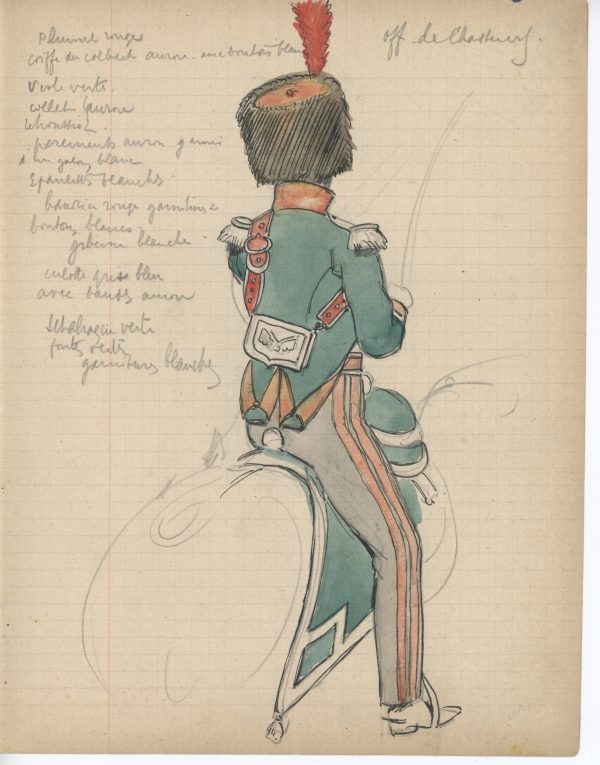 off. de Chasseurs.
Plumet rouge
coiffe du colback aurore. avec boutons blancs
Veste verte.
collet aurore
retroussis.
parements aurore garnis
d'un galon blanc
Epaulettes blanches
baudrier rouge garniture &
boutons blancs
giberne blanche
culotte gris bleu
avec bandes aurore
Schabraque verte
fontes vertes
garnitures blanches